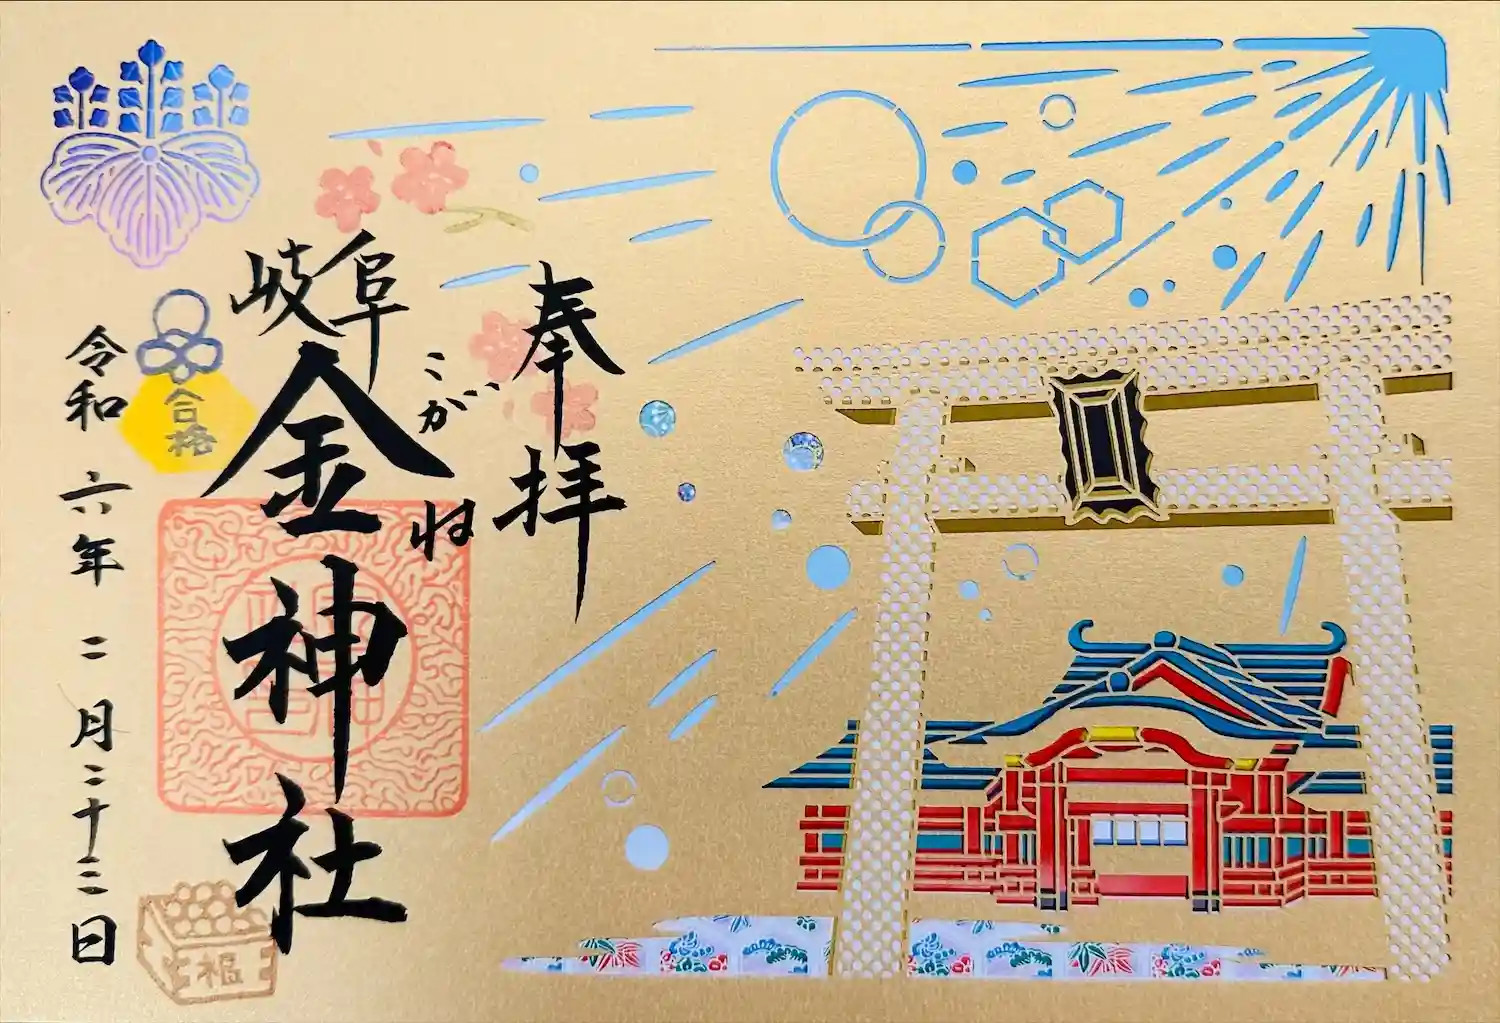 奉拝
岐阜
こがね
金神社
令和六年二月二十二日
合格
福